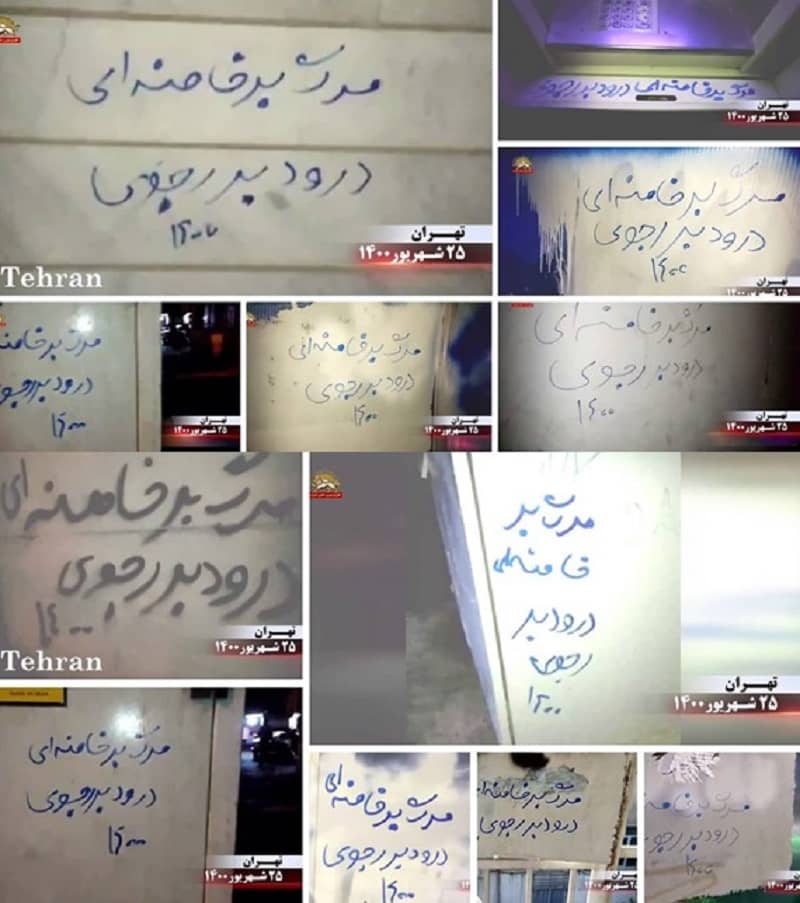 مرگ بر خامنه‌ای
درود بر رجوی
۱۴۰۰
تهران
۲۵ شهریور ۱۴۰۰
Tehran
مرگ بر خامنه‌ای درود بر رجوی
تهران
۲۵ شهریور ۱۴۰۰
مرگ بر خامنه‌ای
درود بر رجوی
۱۴۰۰
تهران
۲۵ شهریور ۱۴۰۰
مرگ بر خامنه
درود بر رجوی
۱۴۰۰
تهران
۲۵ شهریور ۱۴۰۰
مرگ بر خامنه‌ای
درود بر رجوی
۱۴۰۰
تهران
۲۵ شهریور ۱۴۰۰
مرگ بر خامنه‌ای
درود بر رجوی
۱۴۰۰
تهران
۲۵ شهریور ۱۴۰۰
مرگ بر خامنه‌ای
درود بر رجوی
۱۴۰۰
تهران
۲۵ شهریور ۱۴۰۰
Tehran
مرگ بر
خامنه‌ای
درود بر
رجوی
۱۴۰۰
تهران
۲۵ شهریور ۱۴۰۰
مرگ بر خامنه‌ای
درود بر رجوی
۱۴۰۰
تهران
۲۵ شهریور ۱۴۰۰
مرگ بر خامنه‌ای
درود بر رجوی
۱۴۰۰
مرگ بر خامنه‌ای
درود بر رجوی
تهران
۲۵ شهریور ۱۴۰۰
مرگ بر خامنه‌ای
درود بر رجوی
۱۴۰۰
تهران
۲۵ شهریور